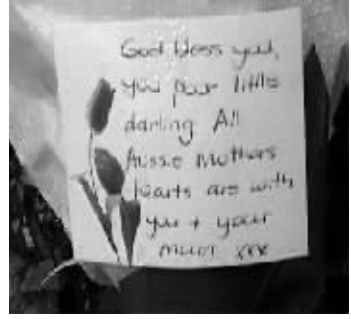 God bless you,
you poor little
darling All
Aussie Mothers
hearts are with
you + your
mum xxx